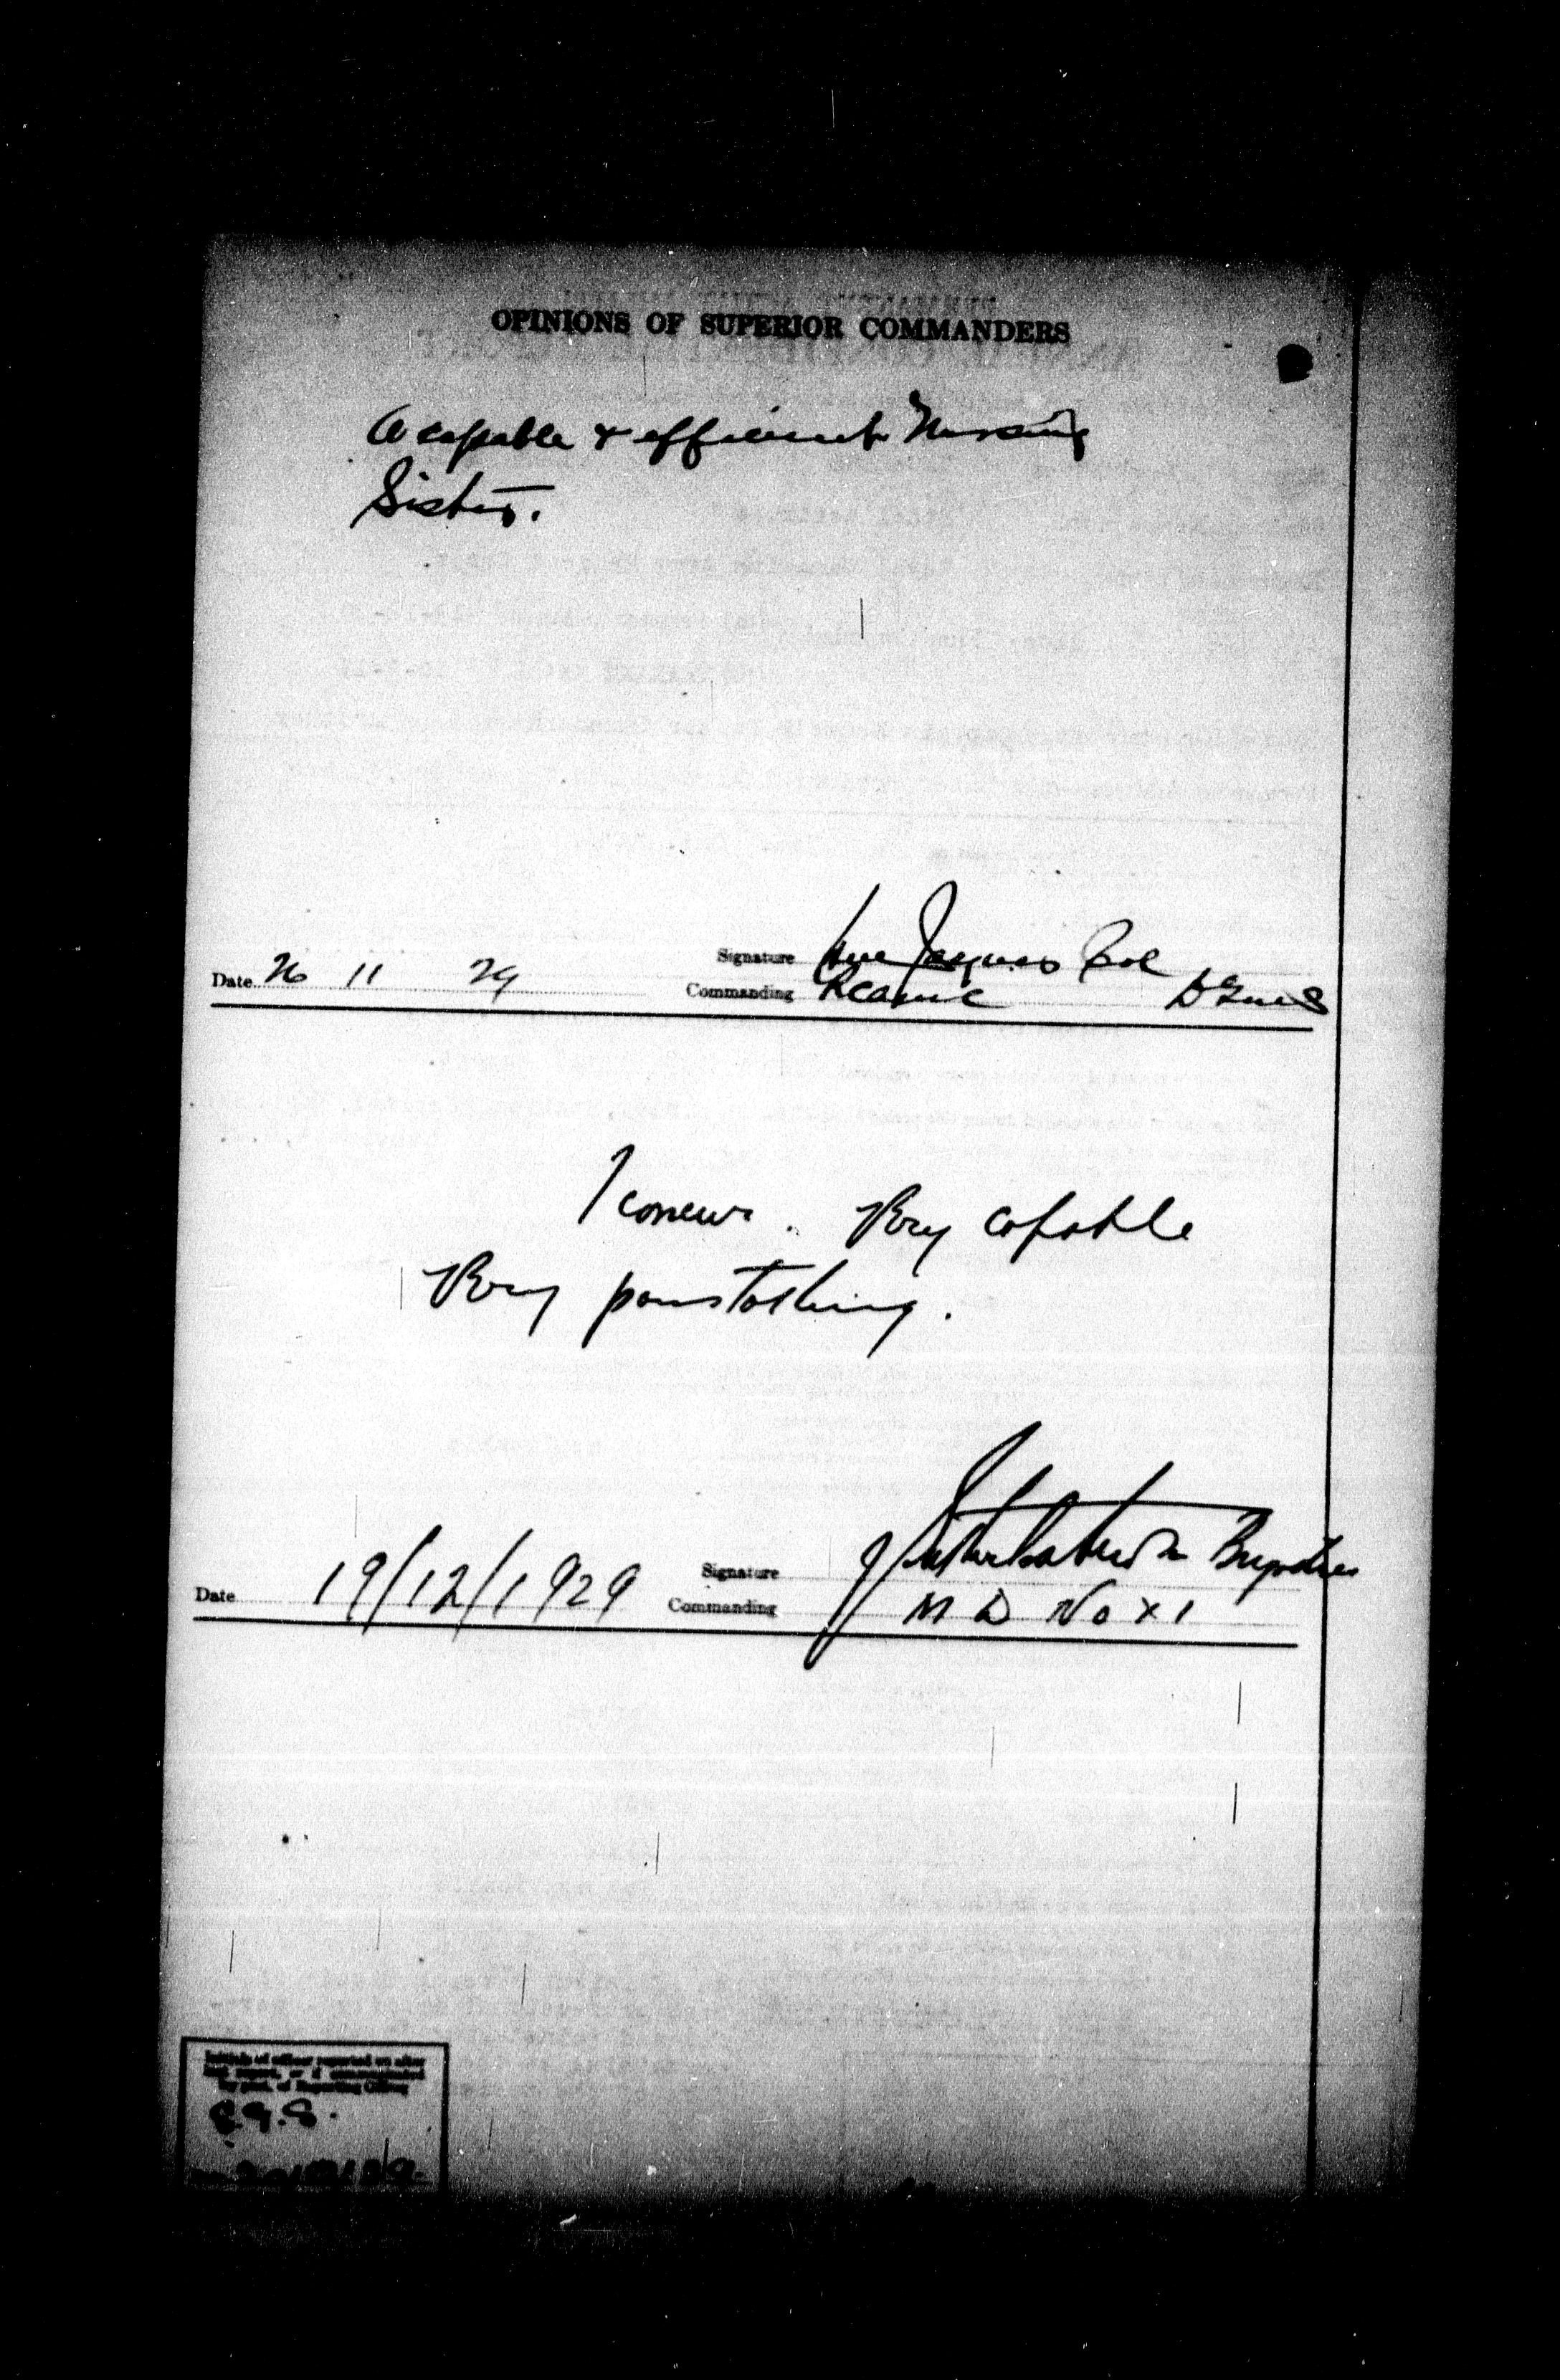 OPINIONS OF SUPERIOR COMMANDERS
A capable & efficient Nursing
Sister.
Signature Jaques Col
Date 26 11 29 Commanding RCAMC DGMS
I concur. Very capable
Very painstaking.
Signature J Sutherland Brown Brigadier
Date 19/12/1929 Commanding M D No XI
Initials of officer reported on after
by post, of Reporting Officer